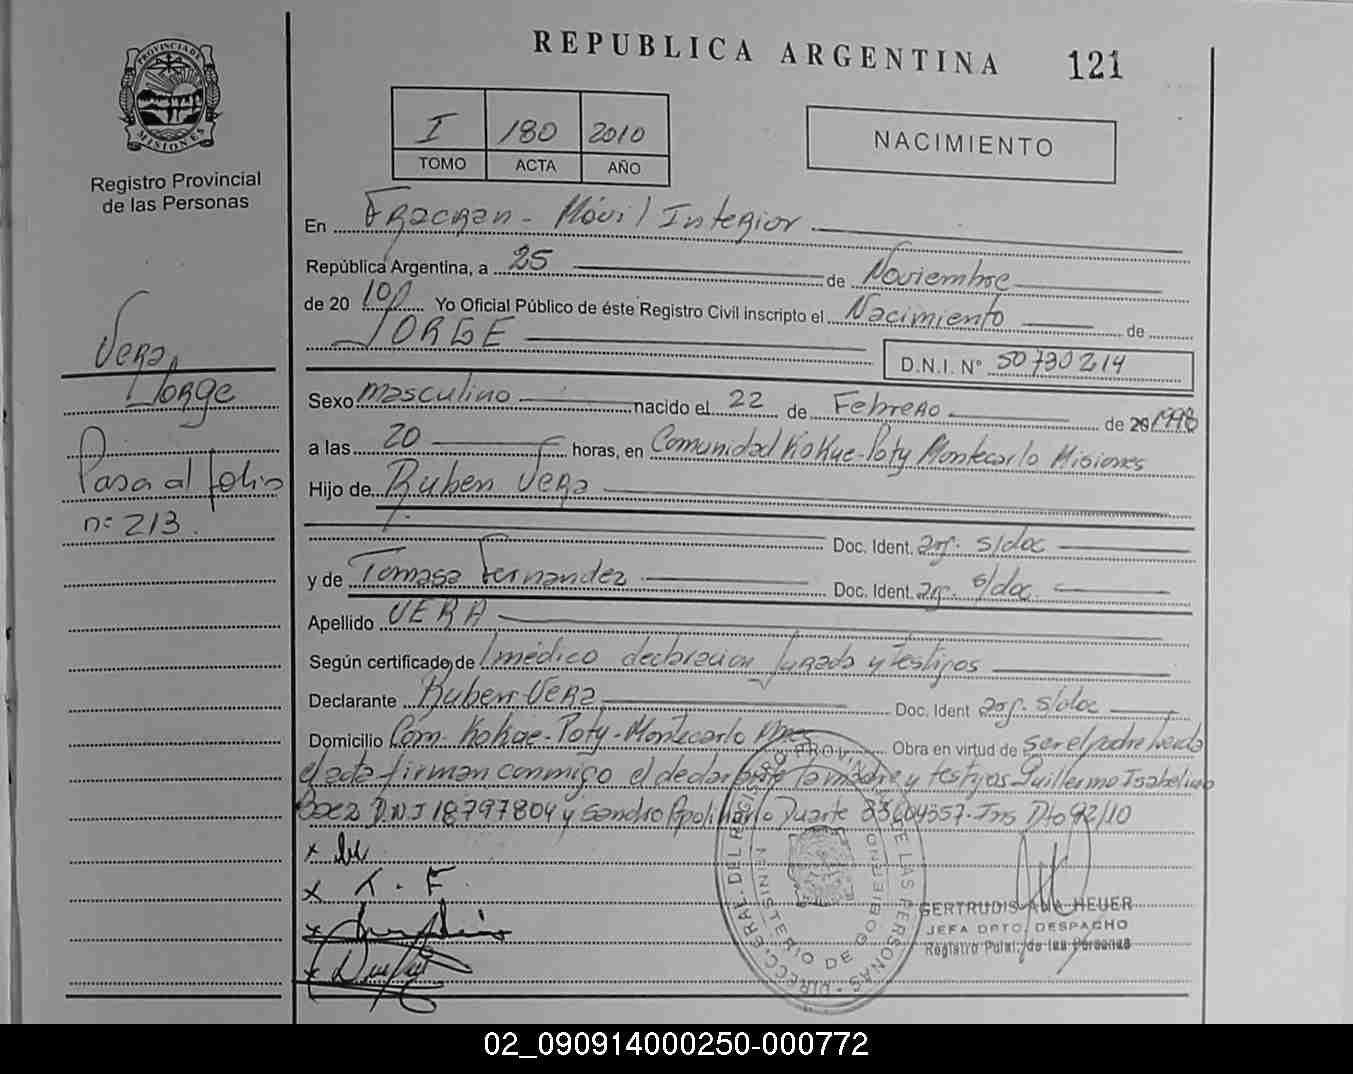 REPUBLICA ARGENTINA 121
PROVINCIA DE MISIONES
Registro Provincial
de las Personas
I 180 2010
TOMO ACTA AÑO
NACIMIENTO
En Fracran - Móvil Interior
República Argentina, a 25 de Noviembre
de 20 10 Yo Oficial Público de éste Registro Civil inscripto el Nacimiento de
JORGE
D.N.I. N° 50730214
Vera,
Jorge
Pasa al folio
n: 213.
Sexo masculino nacido el 22 de Febrero de 20 1998
a las 20 horas, en Comunidad Kokue-Poty Montecarlo Misiones
Hijo de Ruben Vera
Doc. Ident. arg. s/doc
y de Tomasa Fernandez Doc. Ident. arg. s/doc.
Apellido VERA
Según certificado de médico declaracion Jurada y testigos
Declarante Ruben Vera Doc. Ident arg. s/doc
Domicilio Com. Kokue-Poty-Montecarlo Mnes Obra en virtud de ser el padre leida
el acta firman conmigo el declarante la madre y testigos Guillermo Isabelino
Baez D.N.I 18797804 y Sandro Apolinario Duarte 33604357. Ins Dto 92/10
x
x T. F.
x
x
DIRECC. GRAL. DEL REGISTRO PROVINCIAL DE LAS PERSONAS
MINISTERIO DE GOBIERNO
GERTRUDIS ANA HEUER
JEFA DPTO. DESPACHO
Registro Pcial. de las Personas
02_090914000250-000772